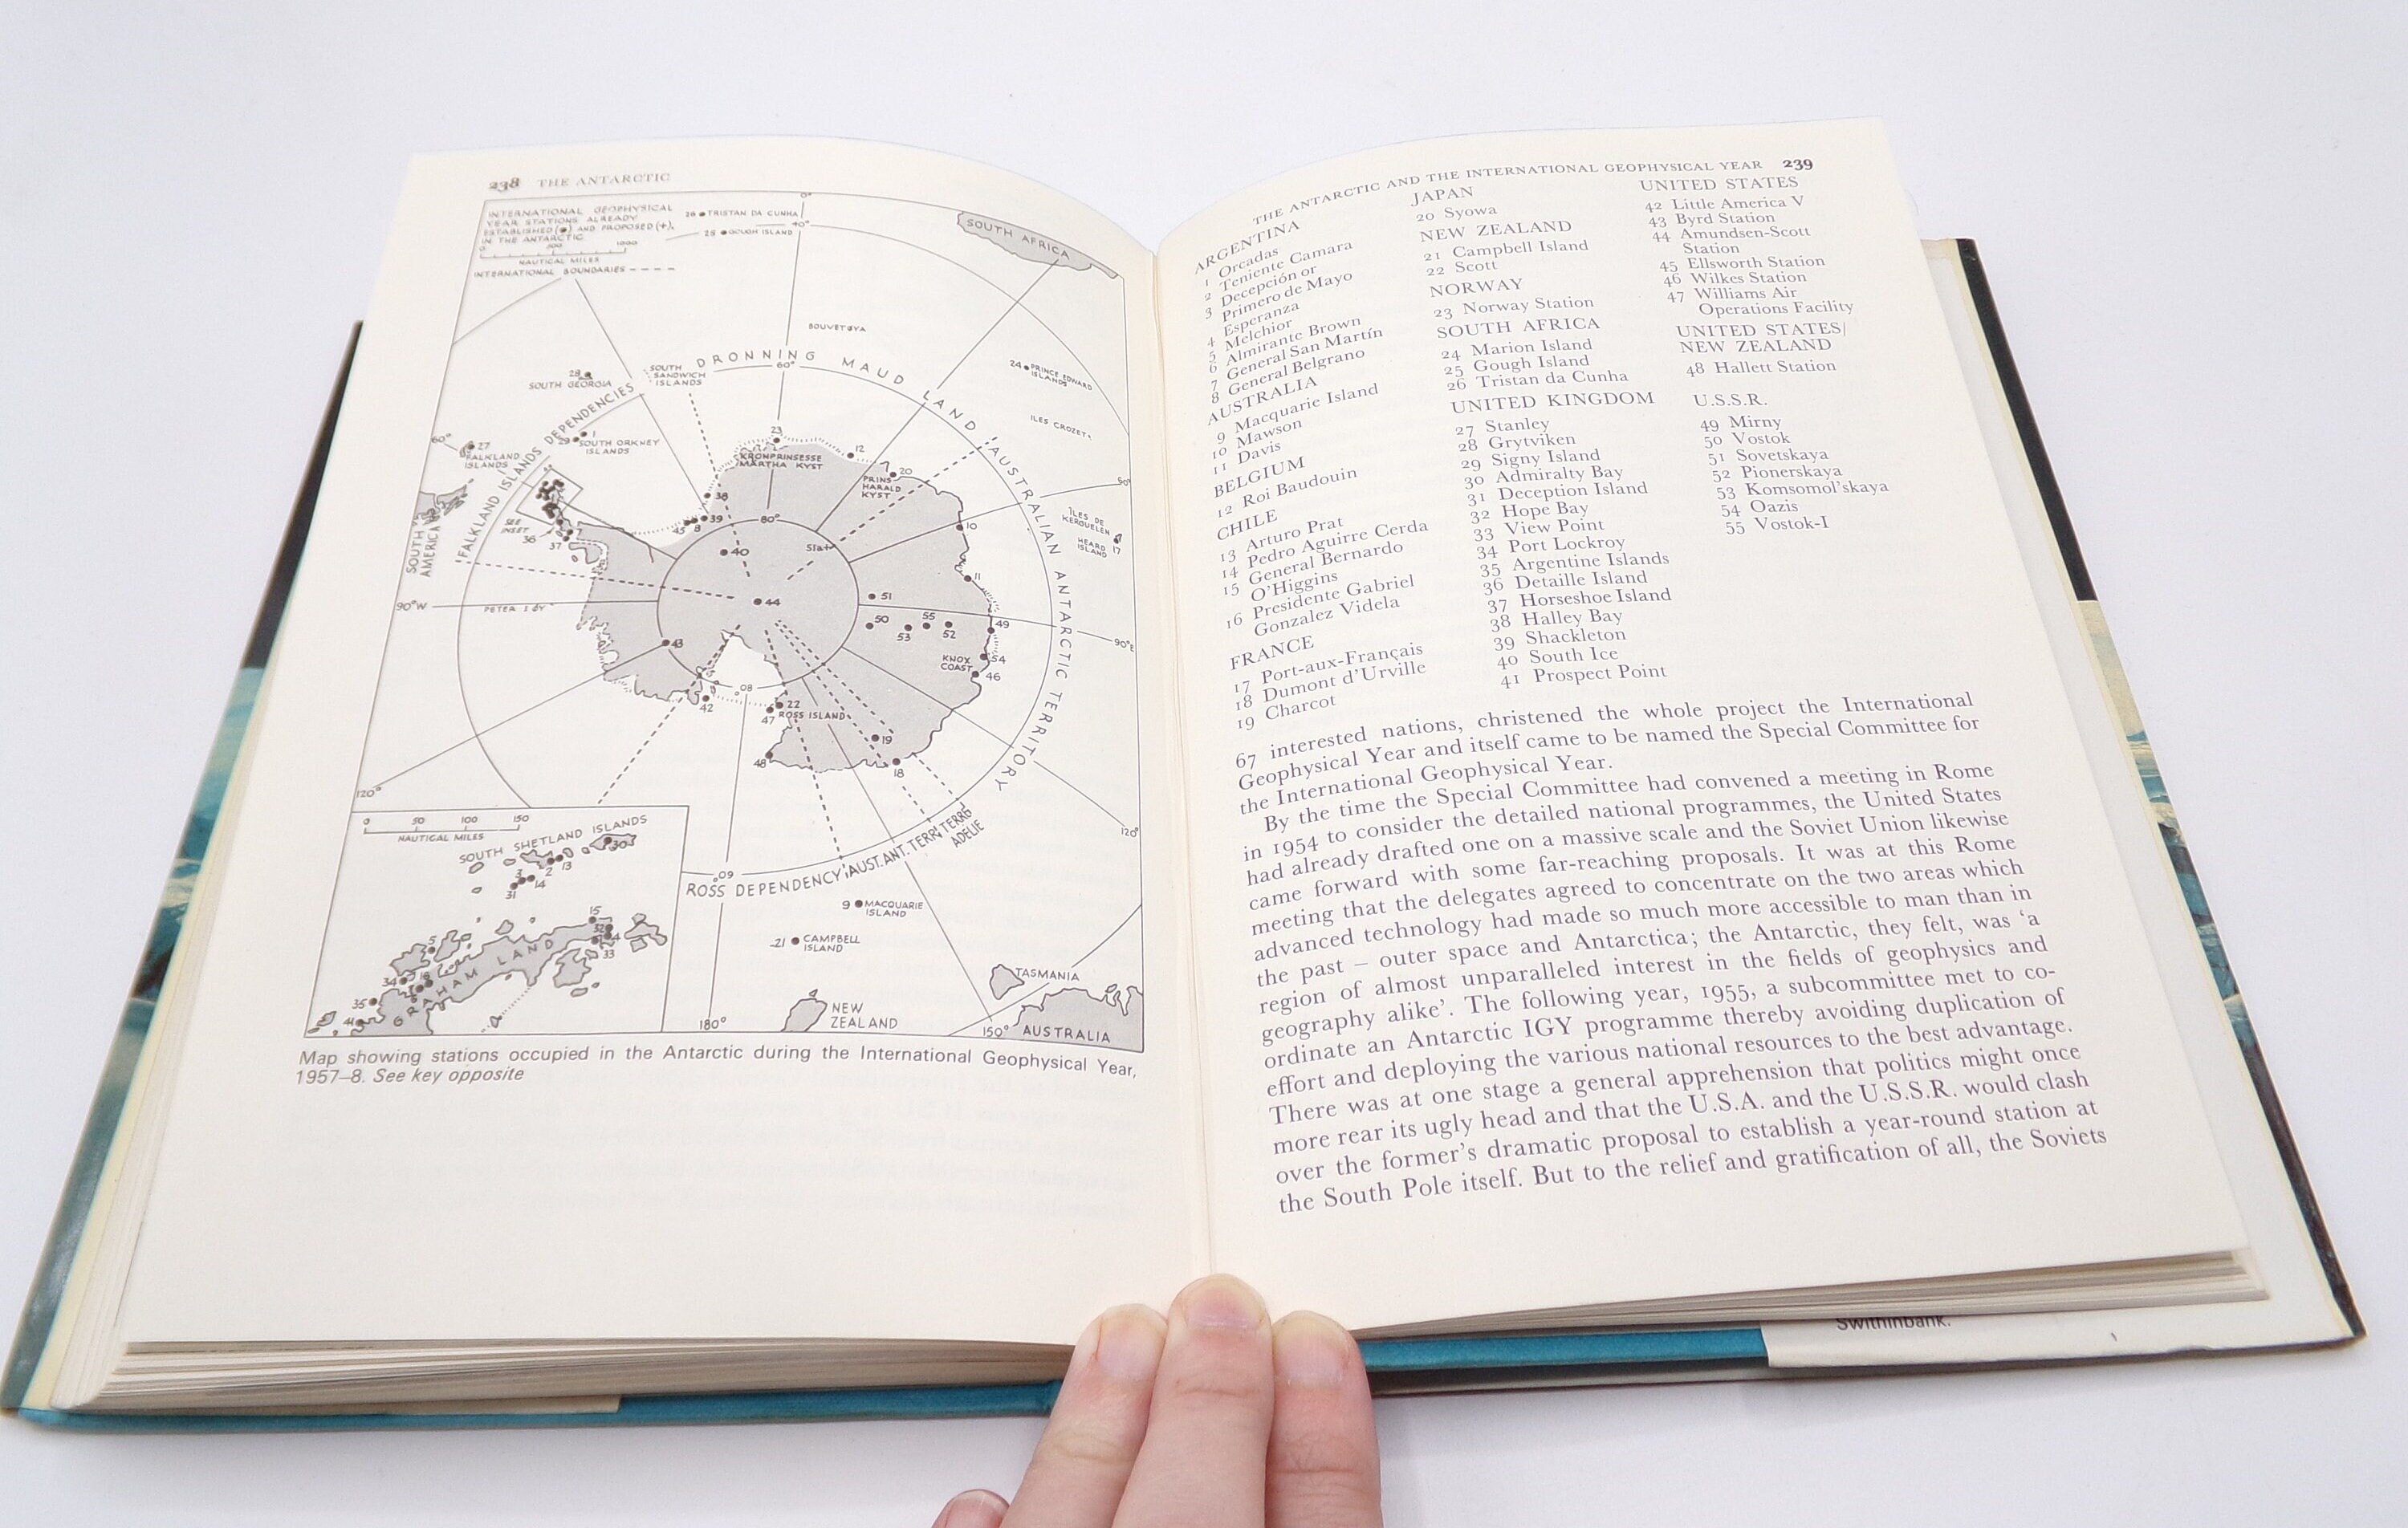 238 THE ANTARCTIC
INTERNATIONAL GEOPHYSICAL
YEAR STATIONS ALREADY
ESTABLISHED (●) AND PROPOSED (+),
IN THE ANTARCTIC
0 500 1000
NAUTICAL MILES
INTERNATIONAL BOUNDARIES
26 TRISTAN DA CUNHA
25 GOUGH ISLAND
0°
40°
SOUTH AFRICA
BOUVETØYA
DRONNING MAUD LAND
60°
SOUTH
SANDWICH
ISLANDS
28
SOUTH GEORGIA
24 PRINCE EDWARD
ISLANDS
ILES CROZET
FALKLAND ISLANDS DEPENDENCIES
60°
27
FALKLAND
ISLANDS
29 1
SOUTH ORKNEY
ISLANDS
23
KRONPRINSESSE
MÄRTHA KYST
12
20
PRINS
HARALD
KYST
AUSTRALIAN ANTARCTIC TERRITORY
60°
ÎLES DE
KERGUELEN
HEARD
ISLAND
17
SOUTH
AMERICA
SEE
INSET
36
37
38
39
45 8
80°
40
51a+
10
11
90°W
PETER I ØY
44
51
50
53
55
52
49
90°E
43
KNOX
COAST
54
46
42
80°
22
47 ROSS ISLAND
19
48
18
120°
120°
60°
ROSS DEPENDENCY
AUST. ANT. TERRY.
TERRE
ADÉLIE
9 MACQUARIE
ISLAND
21 CAMPBELL
ISLAND
TASMANIA
NEW
ZEALAND
180°
150°
AUSTRALIA
0 50 100 150
NAUTICAL MILES
SOUTH SHETLAND ISLANDS
30
13
2
3
14
31
15
32
4
33
5
34
16
6
35
41
GRAHAM LAND
Map showing stations occupied in the Antarctic during the International Geophysical Year,
1957–8. See key opposite
THE ANTARCTIC AND THE INTERNATIONAL GEOPHYSICAL YEAR 239
ARGENTINA
1 Orcadas
2 Teniente Camara
3 Decepción or
Primero de Mayo
4 Esperanza
5 Melchior
6 Almirante Brown
7 General San Martín
8 General Belgrano
AUSTRALIA
9 Macquarie Island
10 Mawson
11 Davis
BELGIUM
12 Roi Baudouin
CHILE
13 Arturo Prat
14 Pedro Aguirre Cerda
15 General Bernardo
O'Higgins
16 Presidente Gabriel
Gonzalez Videla
FRANCE
17 Port-aux-Français
18 Dumont d'Urville
19 Charcot
JAPAN
20 Syowa
NEW ZEALAND
21 Campbell Island
22 Scott
NORWAY
23 Norway Station
SOUTH AFRICA
24 Marion Island
25 Gough Island
26 Tristan da Cunha
UNITED KINGDOM
27 Stanley
28 Grytviken
29 Signy Island
30 Admiralty Bay
31 Deception Island
32 Hope Bay
33 View Point
34 Port Lockroy
35 Argentine Islands
36 Detaille Island
37 Horseshoe Island
38 Halley Bay
39 Shackleton
40 South Ice
41 Prospect Point
UNITED STATES
42 Little America V
43 Byrd Station
44 Amundsen-Scott
Station
45 Ellsworth Station
46 Wilkes Station
47 Williams Air
Operations Facility
UNITED STATES/
NEW ZEALAND
48 Hallett Station
U.S.S.R.
49 Mirny
50 Vostok
51 Sovetskaya
52 Pionerskaya
53 Komsomol'skaya
54 Oazis
55 Vostok-I
67 interested nations, christened the whole project the International
Geophysical Year and itself came to be named the Special Committee for
the International Geophysical Year.
By the time the Special Committee had convened a meeting in Rome
in 1954 to consider the detailed national programmes, the United States
had already drafted one on a massive scale and the Soviet Union likewise
came forward with some far-reaching proposals. It was at this Rome
meeting that the delegates agreed to concentrate on the two areas which
advanced technology had made so much more accessible to man than in
the past – outer space and Antarctica; the Antarctic, they felt, was 'a
region of almost unparalleled interest in the fields of geophysics and
geography alike'. The following year, 1955, a subcommittee met to co-
ordinate an Antarctic IGY programme thereby avoiding duplication of
effort and deploying the various national resources to the best advantage.
There was at one stage a general apprehension that politics might once
more rear its ugly head and that the U.S.A. and the U.S.S.R. would clash
over the former's dramatic proposal to establish a year-round station at
the South Pole itself. But to the relief and gratification of all, the Soviets
Swithinbank.